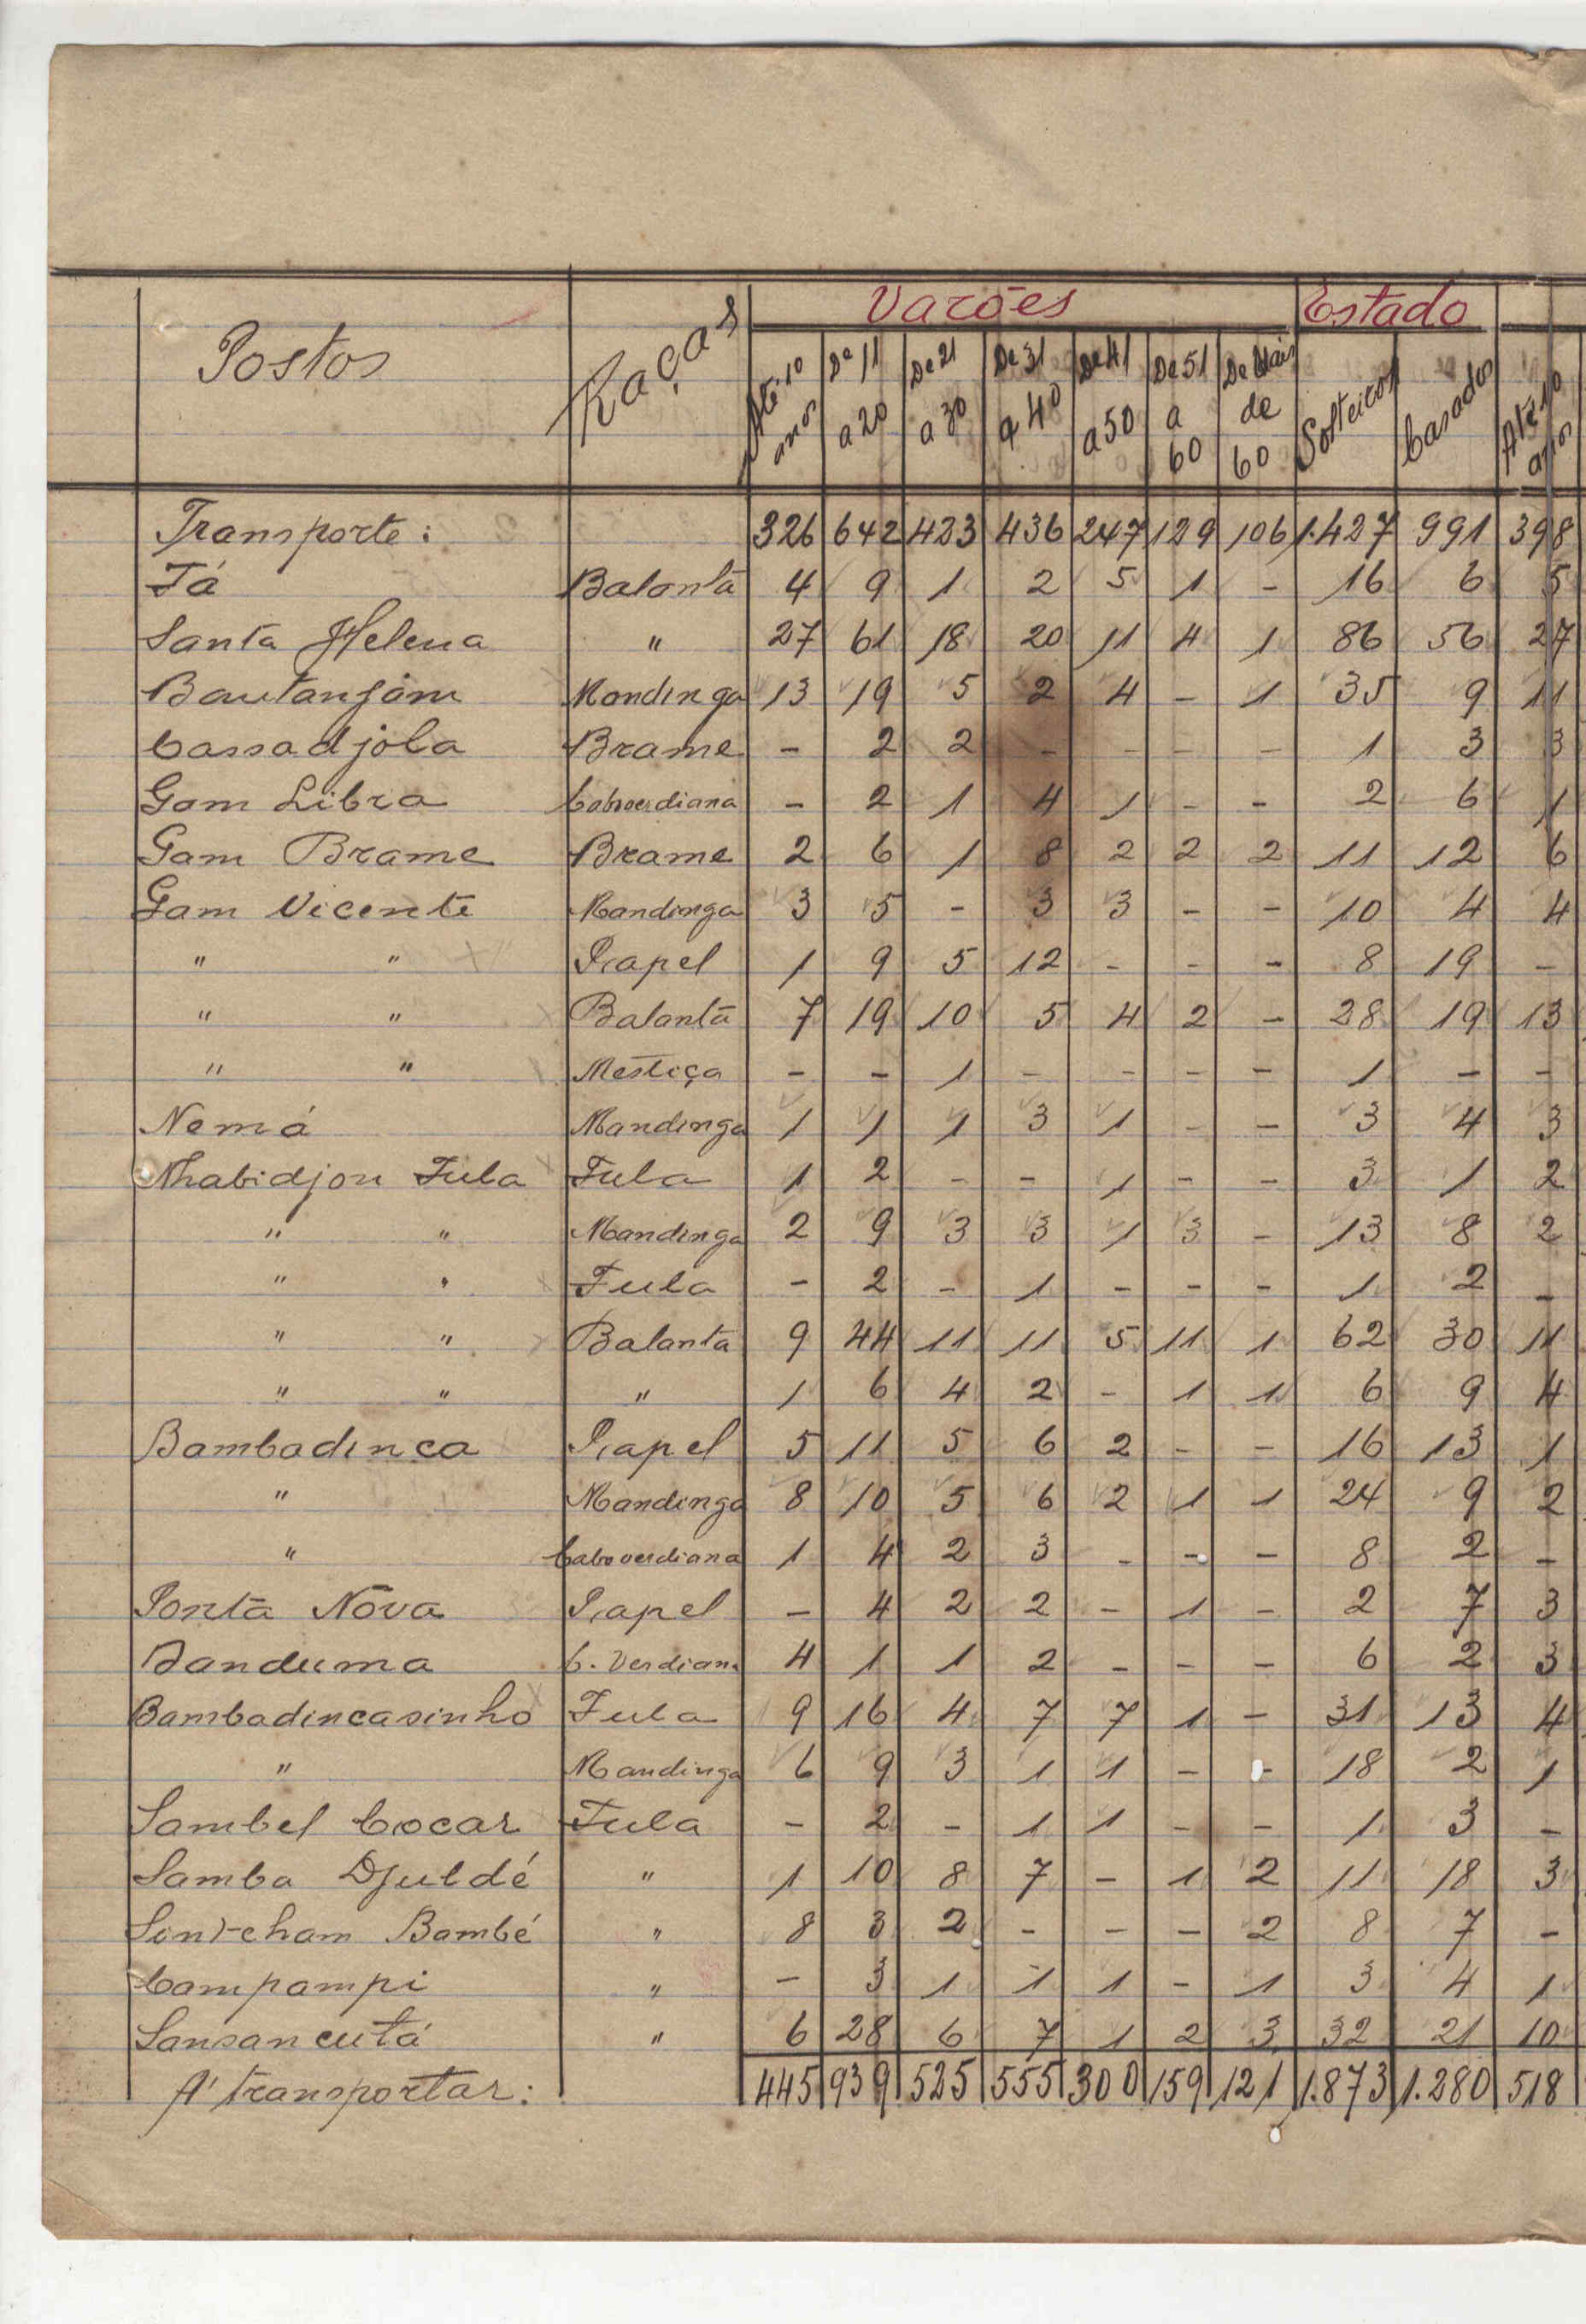 Varões Estado
Postos Raças Até 10 anos De 11 a 20 De 21 a 30 De 31 a 40 De 41 a 50 De 51 a 60 De Mais de 60 Solteiros Casados Até 10 anos
Transporte: 326 642 423 436 247 129 106 1.427 991 398
Fá Balanta 4 9 1 2 5 1 - 16 6 5
Santa Helena " 27 61 18 20 11 4 1 86 56 27
Bantanjám Mandinga 13 19 5 2 4 - 1 35 9 11
Cassadjola Brame - 2 2 - - - - 1 3 3
Gam Libra Caboverdiana - 2 1 4 1 - - 2 6 1
Gam Brame Brame 2 6 1 8 2 2 2 11 12 6
Gam Vicente Mandinga 3 5 - 3 3 - - 10 4 4
" " Papel 1 9 5 12 - - - 8 19 -
" " Balanta 7 19 10 5 4 2 - 28 19 13
" " Mestiça - - 1 - - - - 1 - -
Nemá Mandinga 1 1 1 3 1 - - 3 4 3
Nhabidjon Fula Fula 1 2 - - 1 - - 3 1 2
" " Mandinga 2 9 3 3 1 3 - 13 8 2
" " Fula - 2 - 1 - - - 1 2 -
" " Balanta 9 44 11 11 5 11 1 62 30 11
" " " 1 6 4 2 - 1 1 6 9 4
Bambadinca Papel 5 11 5 6 2 - - 16 13 1
" Mandinga 8 10 5 6 2 1 1 24 9 2
" Caboverdiana 1 4 2 3 - - - 8 2 -
Ponta Nova Papel - 4 2 2 - 1 - 2 7 3
Banduma C. Verdiana 4 1 1 2 - - - 6 2 3
Bambadincasinho Fula 9 16 4 7 7 1 - 31 13 4
" Mandinga 6 9 3 1 1 - - 18 2 1
Sambel Cocar Fula - 2 - 1 1 - - 1 3 -
Samba Djuldé " 1 10 8 7 - 1 2 11 18 3
Sint-cham Bambé " 8 3 2 - - - 2 8 7 -
Campampi " - 3 1 1 1 - 1 3 4 1
Sansancutá " 6 28 6 7 1 2 3 32 21 10
A' transportar: 445 939 525 555 300 159 121 1.873 1.280 518